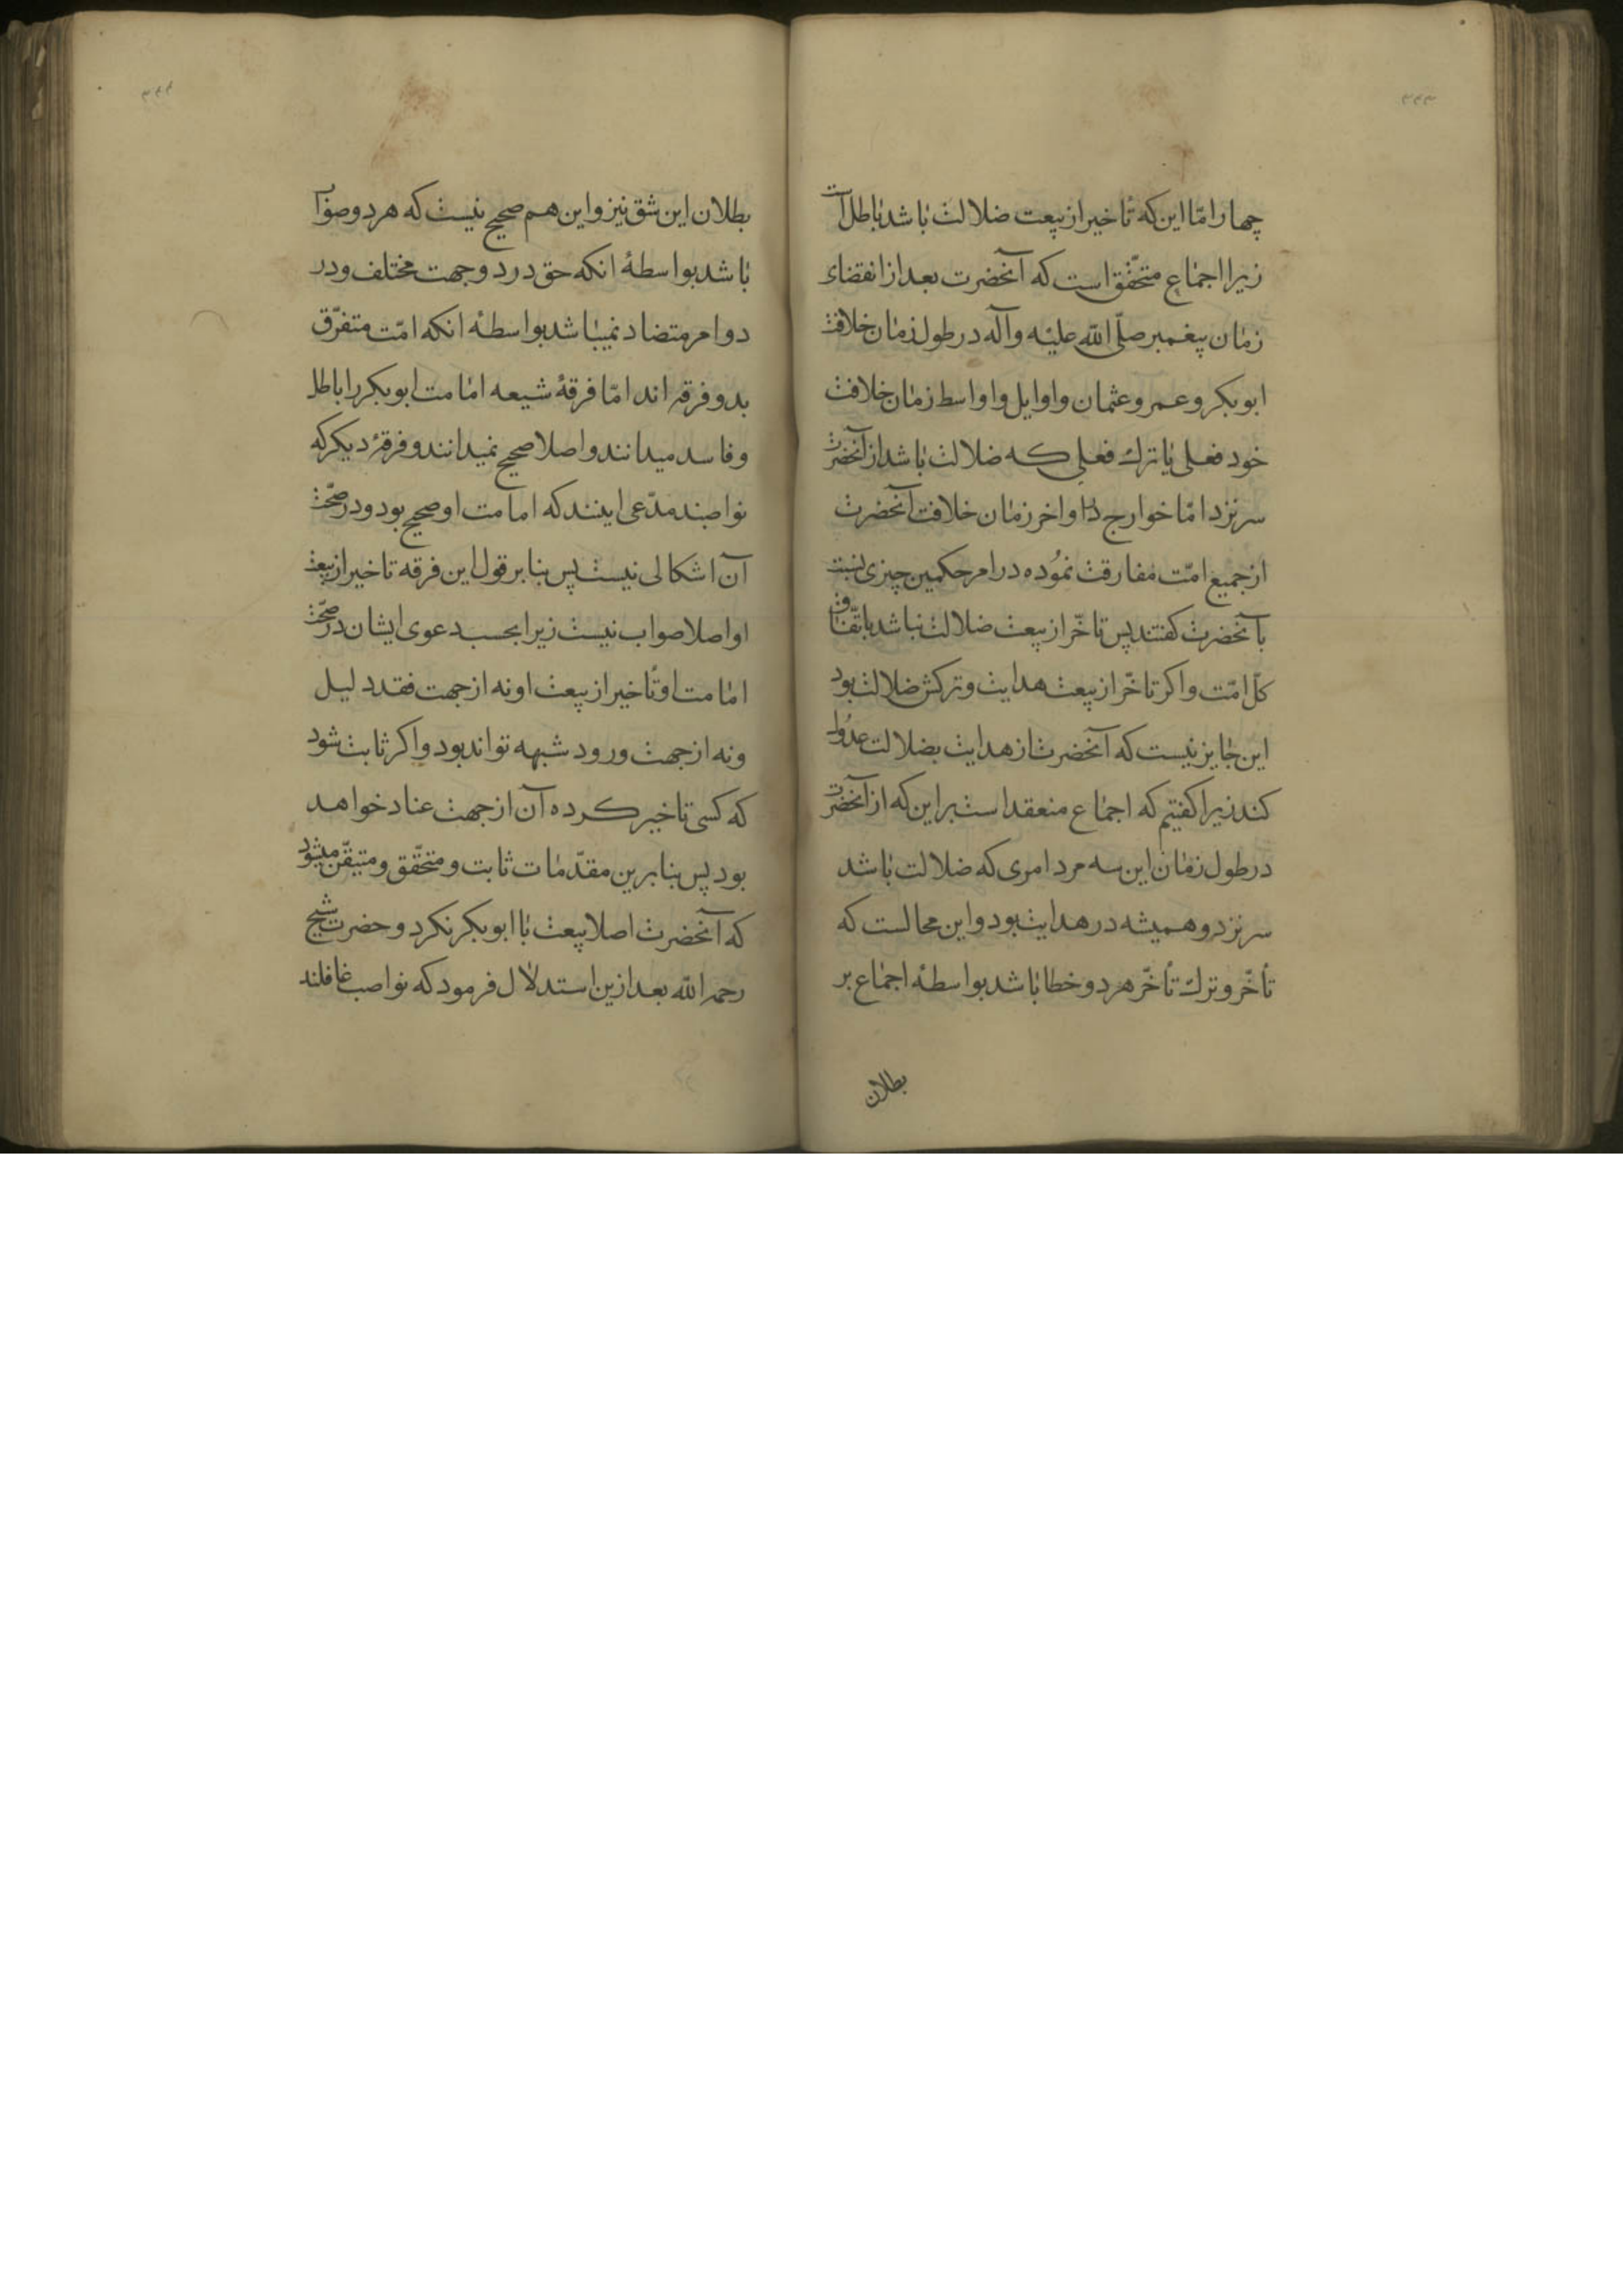 ۳۴۳
چهار امّا این که تأخیر از بیعت ضلالت باشد باطل است
زیرا اجماع متحقّق است که آنحضرت بعد از انقضاء
زمان پیغمبر صلّی اللّه علیه وآله در طول زمان خلافت
ابوبکر و عمر و عثمان و اوایل و اواسط زمان خلافت
خود فعلی یا ترك فعلی که ضلالت باشد از آنحضرت
سر نزد امّا خوارج در اواخر زمان خلافت آنحضرت
از جمیع امّت مفارقت نموده در امر حکمین چیزی نسبت
بآنحضرت کفتند پس تاخّر از بیعت ضلالت نباشد باتّفاق
کلّ امّت و اکر تاخّر از بیعت هدایت و ترکش ضلالت بود
این جایز نیست که آنحضرت از هدایت بضلالت عدول
کند زیرا کفتیم که اجماع منعقد است بر این که از آنحضرت
در طول زمان این سه مرد امری که ضلالت باشد
سر نزد و همیشه در هدایت بود و این محالست که
تأخّر و ترك تأخّر هر دو خطا باشد بواسطهٔ اجماع بر
بطلان
۳۴۴
بطلان این شق نیز و این هم صحیح نیست که هر دو صواب
باشد بواسطهٔ انکه حق در دو جهت مختلف و در
دو امر متضاد نمیباشد بواسطهٔ انکه امّت متفرّق
بدو فرقه اند امّا فرقهٔ شیعه امامت ابوبکر را باطل
و فاسد میدانند و اصلا صحیح نمیدانند و فرقهٔ دیکر که
نواصبند مدّعی اینند که امامت او صحیح بود و در صحّت
آن اشکالی نیست پس بنا بر قول این فرقه تاخیر از بیعت
او اصلا صواب نیست زیرا بحسب دعوی ایشان در صحّت
امامت او تأخیر از بیعت او نه از جهت فقد دلیل
و نه از جهت ورود شبهه تواند بود و اکر ثابت شود
که کسی تاخیر کرده آن از جهت عناد خواهد
بود پس بنا برین مقدّمات ثابت و متحقّق و متیقّن میشود
که آنحضرت اصلا بیعت با ابوبکر نکرد و حضرت شیخ
رحمه اللّه بعد ازین استدلال فرمود که نواصب غافلند